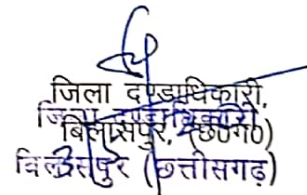 जिला दण्डाधिकारी,
जिला दण्डाधिकारी
बिलासपुर, (छ०ग०)
बिलासपुर (छत्तीसगढ़)